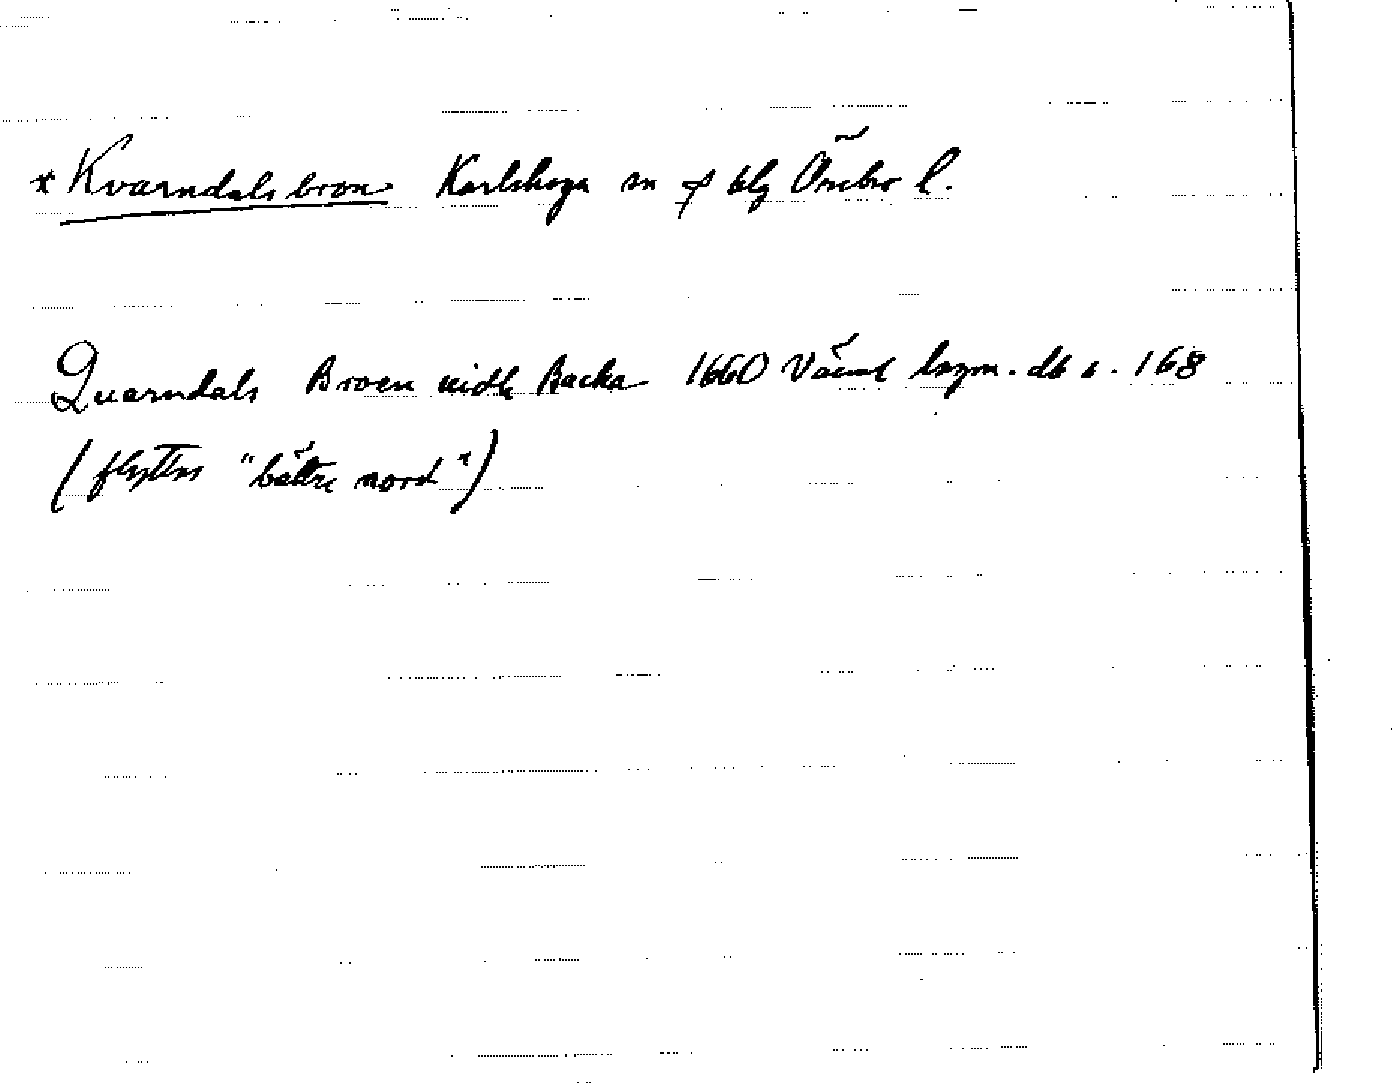 * Kvarndalsbron Karlskoga sn & blg Örebro l.
Quarndals Broen widh Backa 1660 Värml lagm. db s. 168
(flyttas "bättre nord")